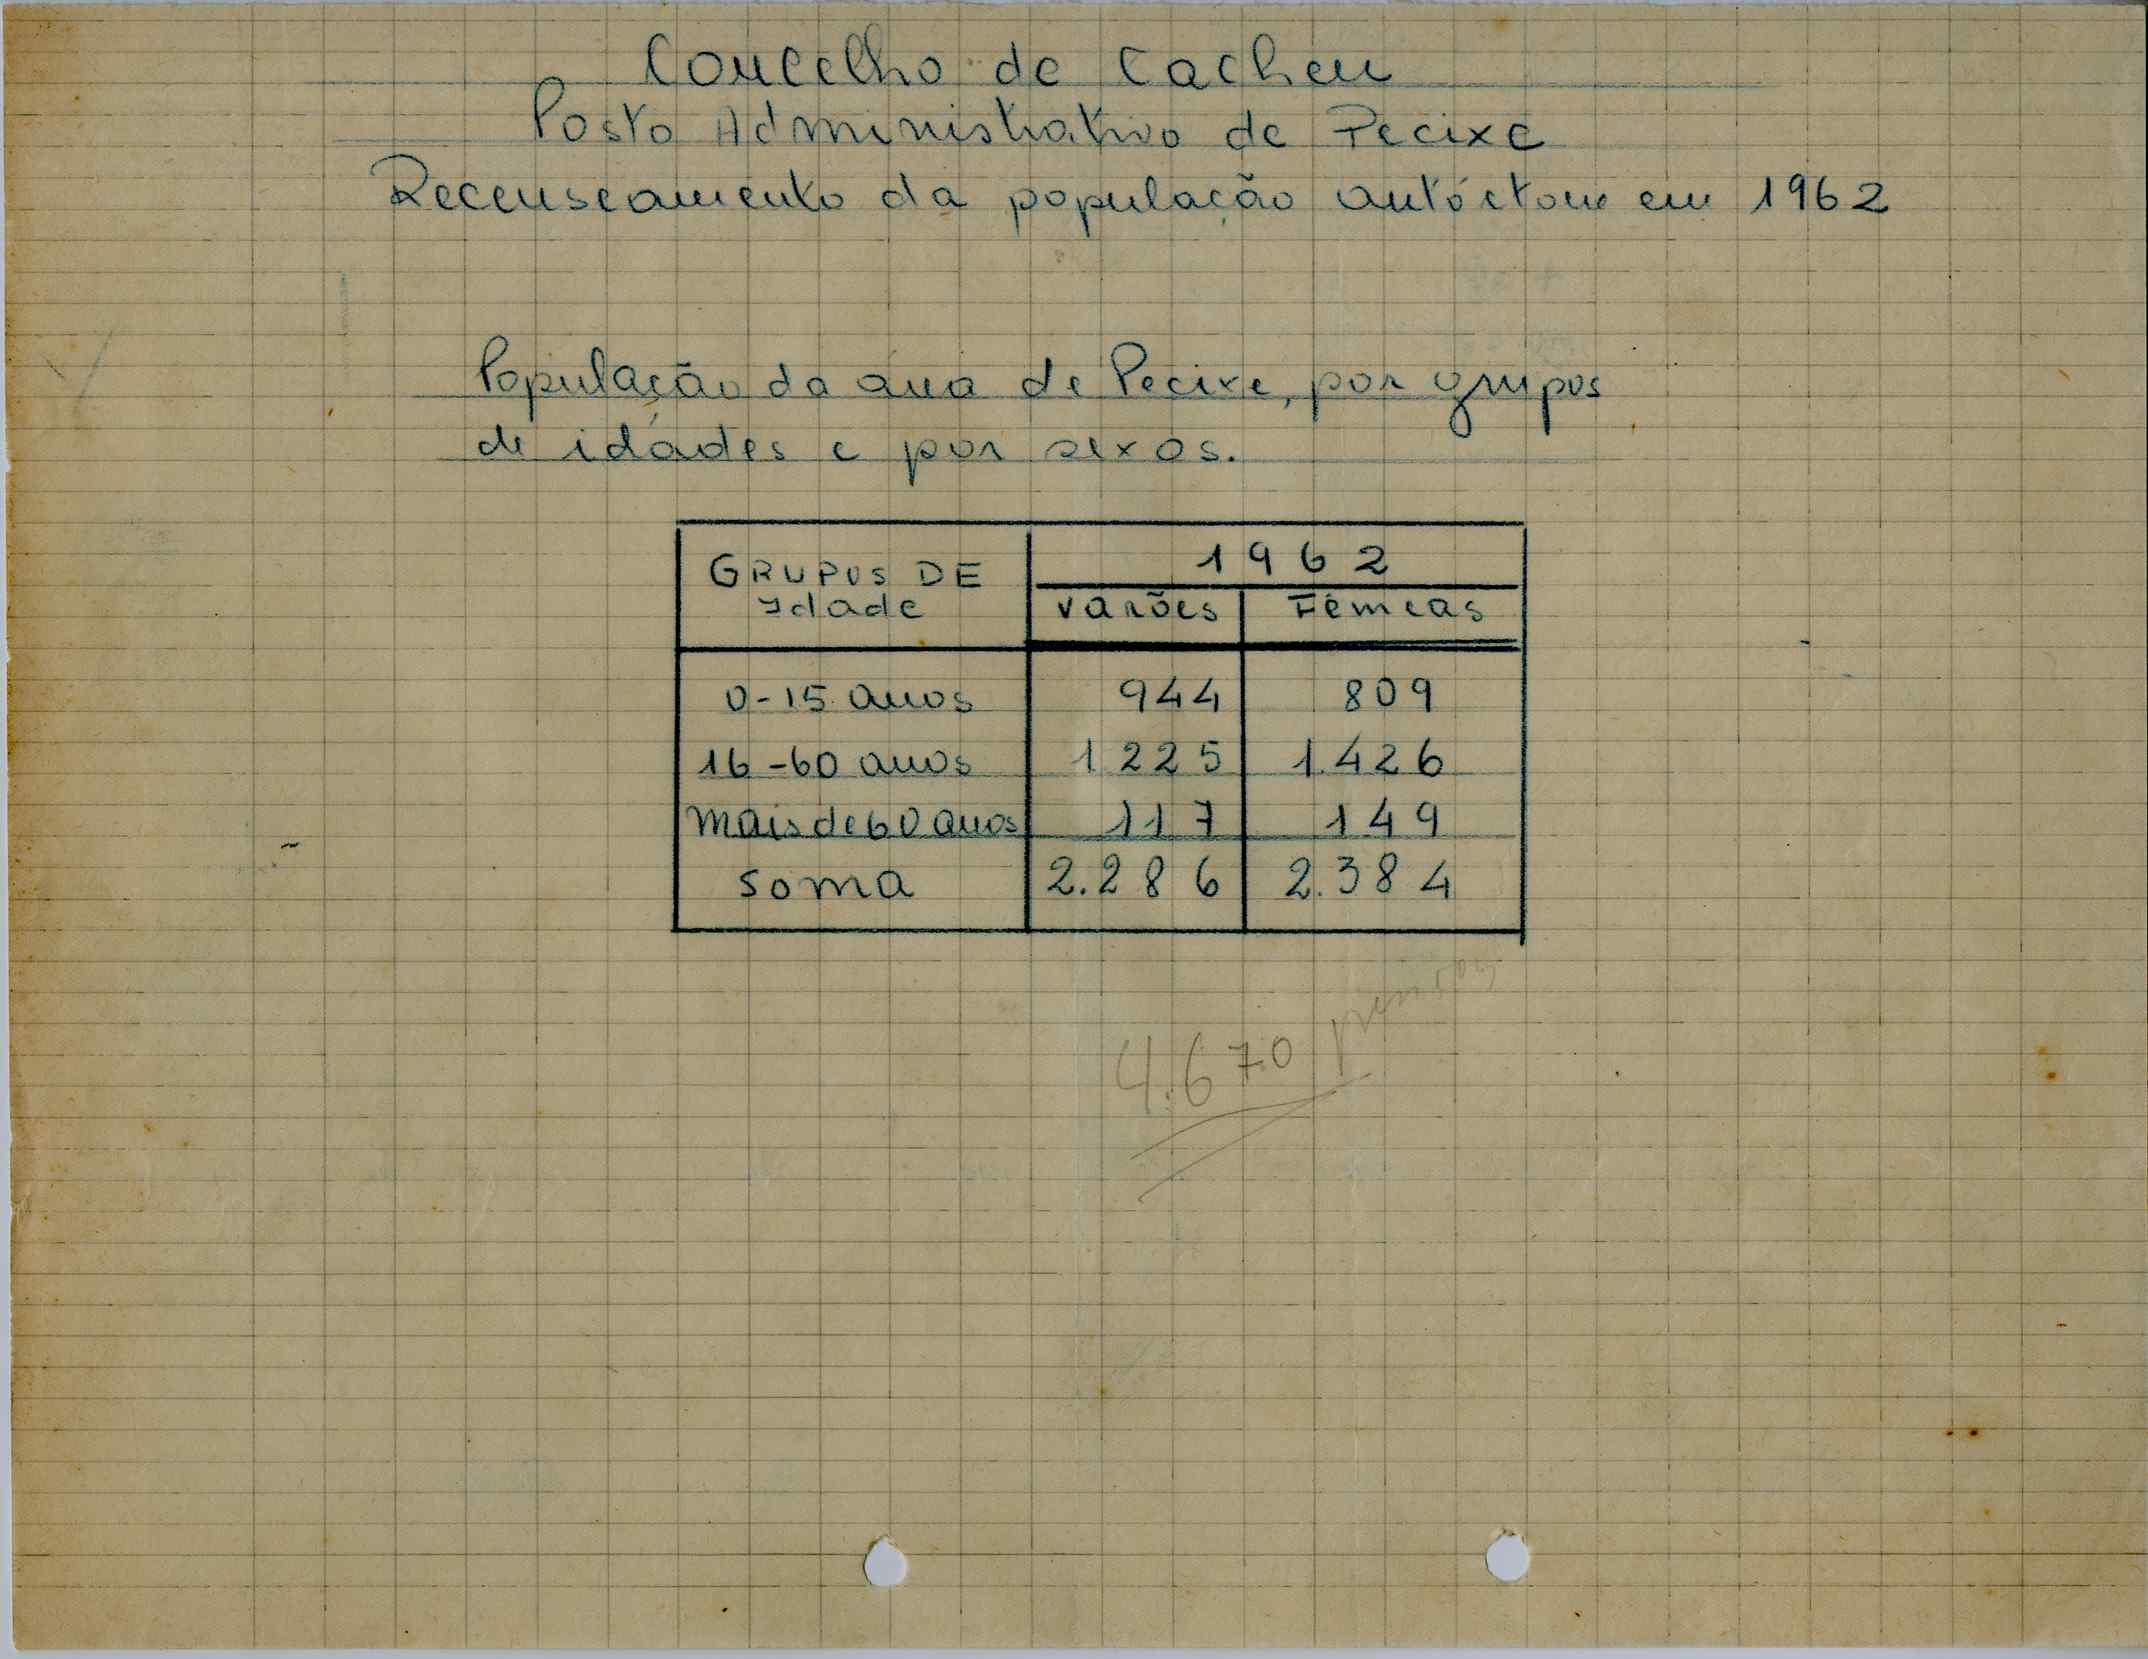 Concelho de Cacheu
Posto Administrativo de Pecixe
Recenseamento da população autóctone em 1962
População da área de Pecixe, por grupos
de idádes e por sexos.
GRUPOS DE
Idade
1962
varões
Fêmeas
0-15 anos 944 809
16-60 anos 1225 1.426
mais de 60 anos 117 149
soma 2.286 2.384
4.670